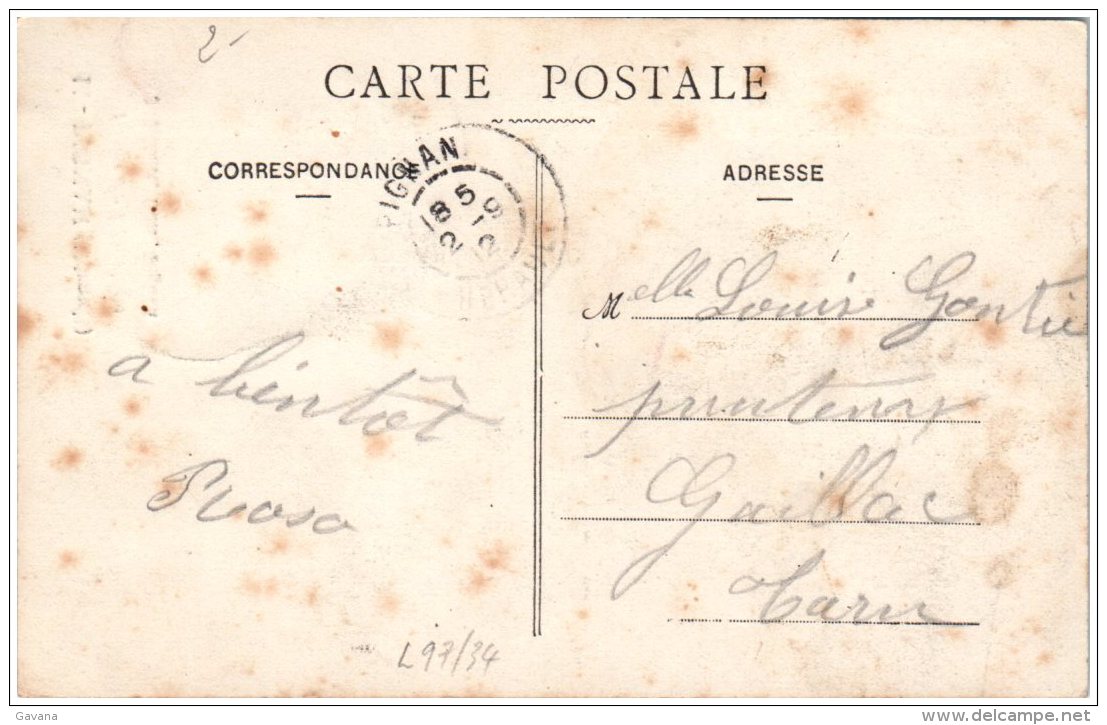 2-
CARTE POSTALE
CORRESPONDANCE
ADRESSE
PIGNAN
18 5
2
Melle Louise Gontié
printemps
Gaillac
Tarn
a bientôt
Rosa
L97/34
Gavana
www.delcampe.net